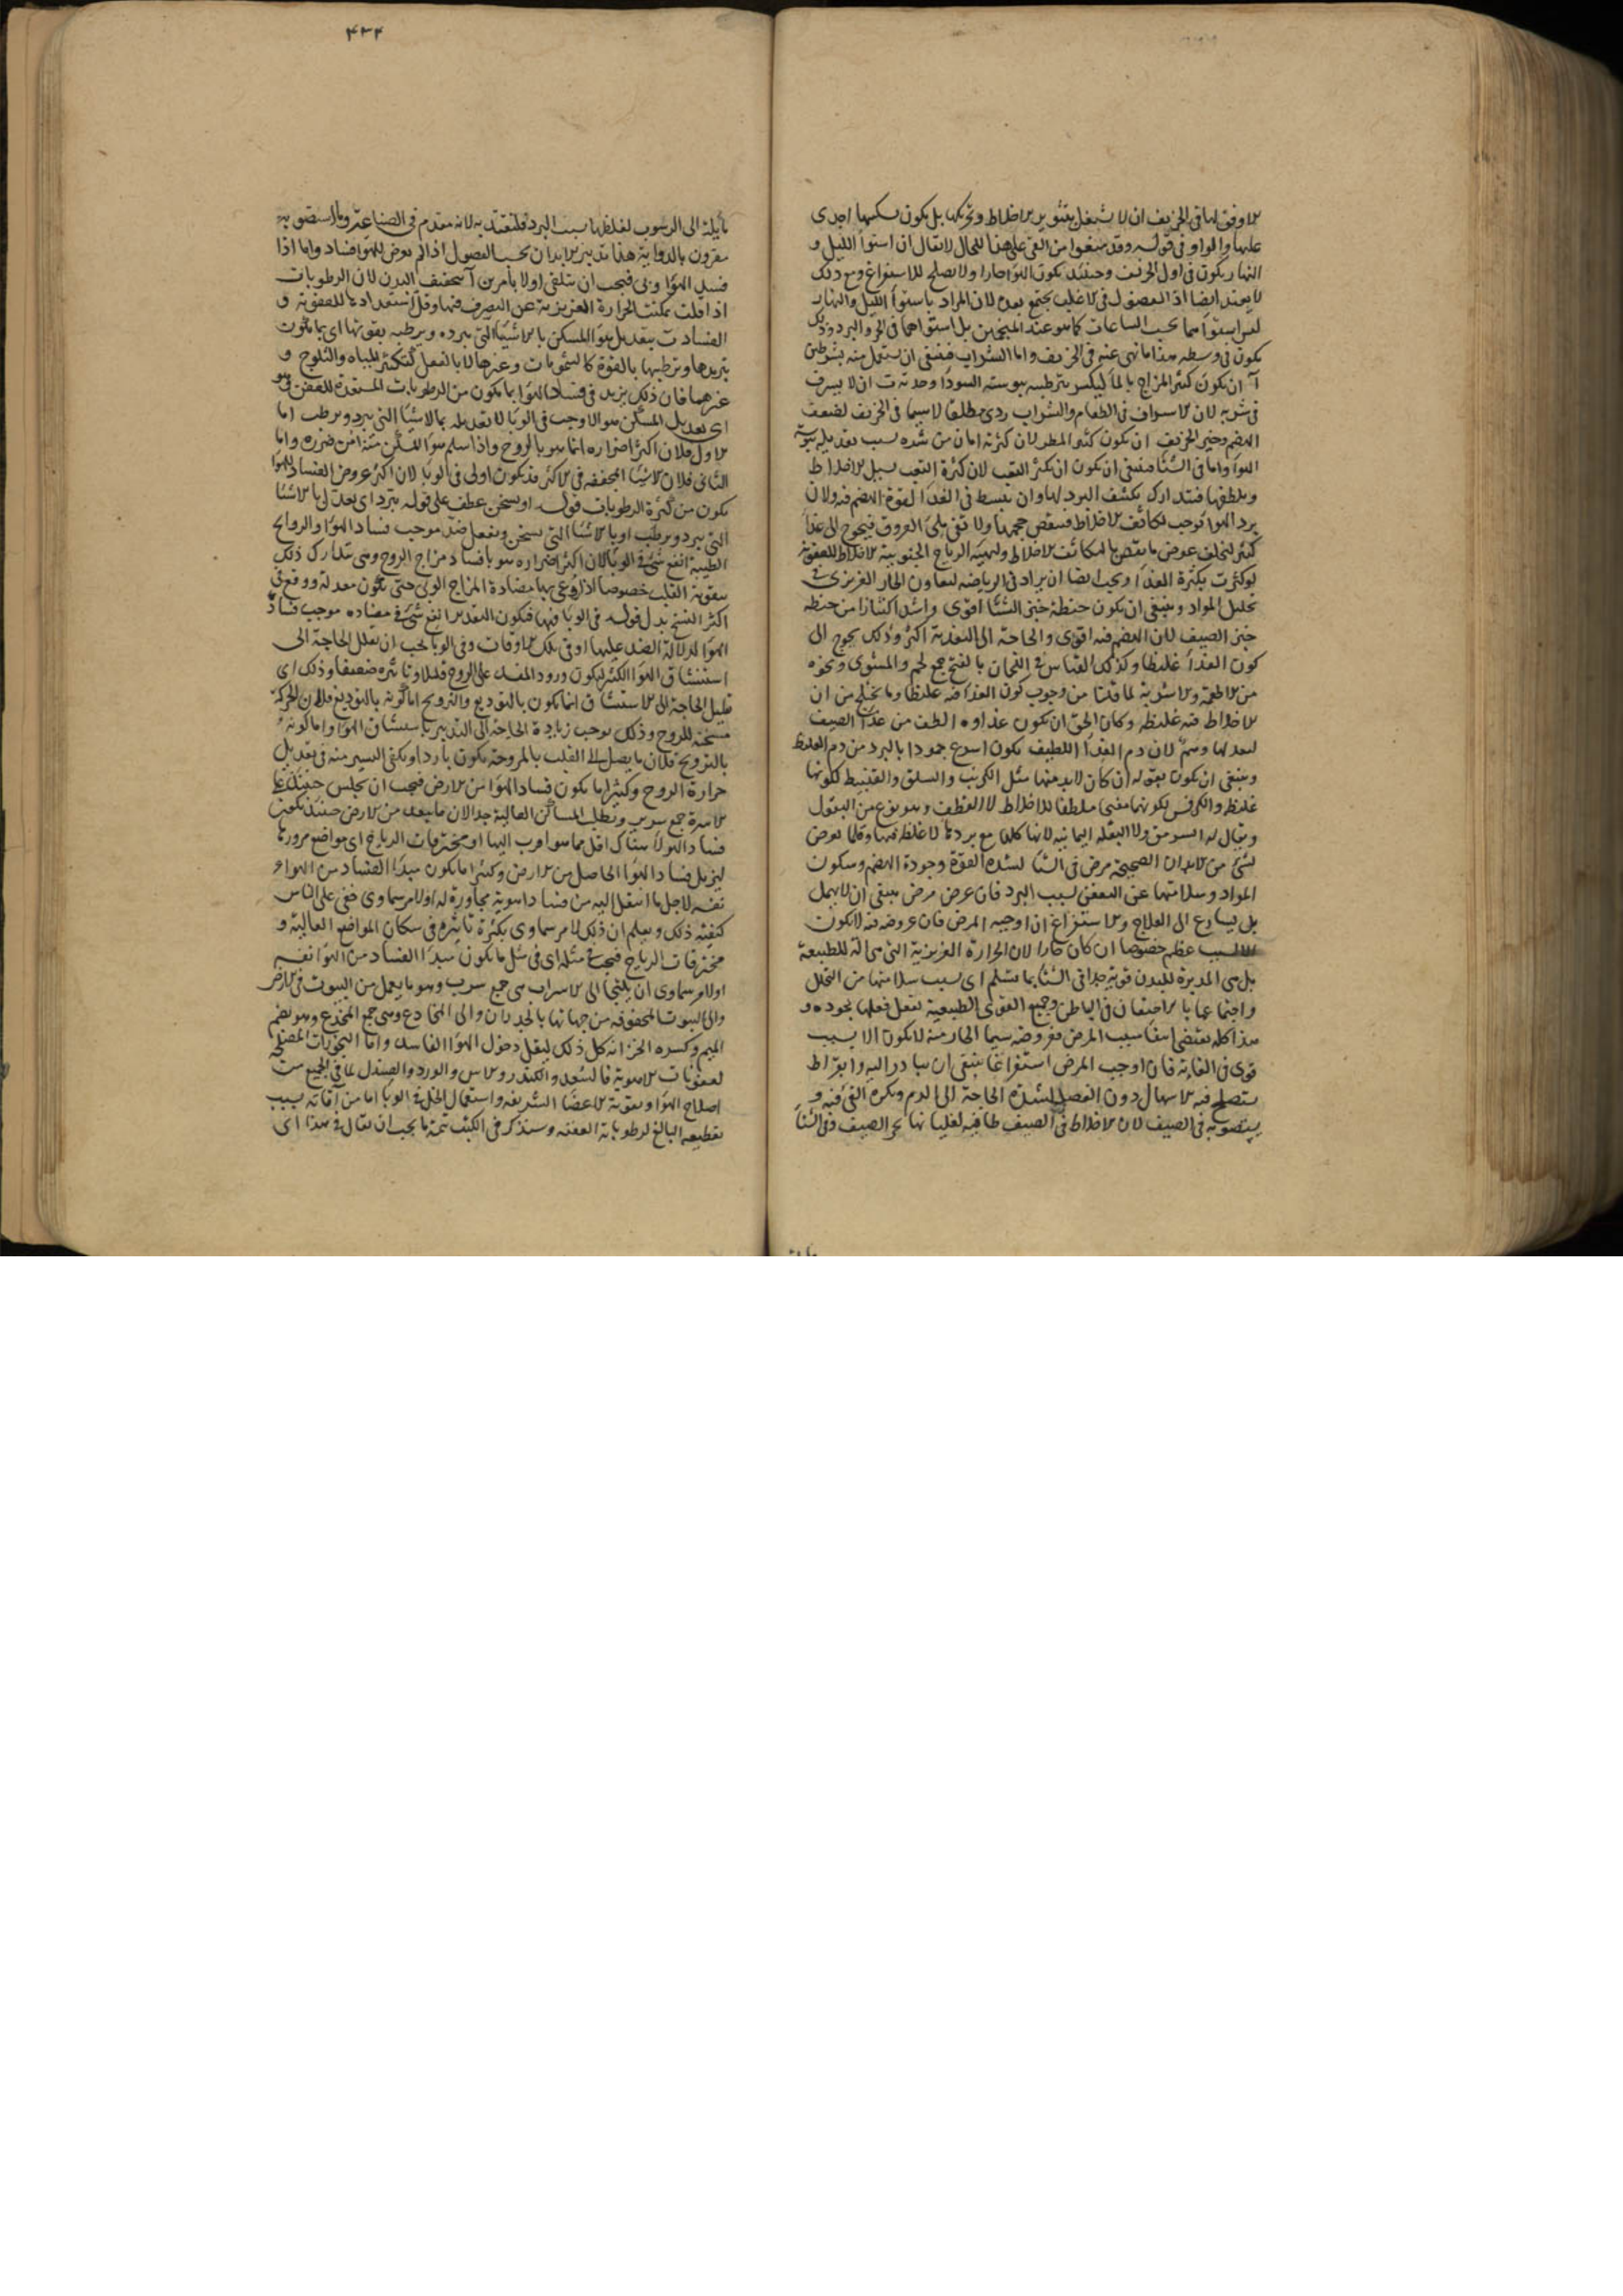 الاوفق لها في الخريف ان لا تشتغل بتثوير الاخلاط وتحريكها بل يكون تسكينها اجدى
عليها والواو في قوله وقد منعوا من القئ على هذا للحال لا يقال ان استواء الليل و
النهار يكون في اول الخريف وحينئذ يكون الهواء حارا ولا يصلح للاستفراغ ومع ذلك
لا يعتد ايضا اذ الفضول في الاغلب يجتمع بعده لان المراد باستواء الليل والنهار
ليس استواءهما بحسب الساعات كما هو عند المنجمين بل استواهما في الحر والبرد وذلك
يكون في وسطه هذا ما نهى عنه في الخريف واما الشراب فينبغي ان يستعمل منه بشرطين
آ ان يكون كثير المزاج بالماء ليكسر بترطيبه يبوسته السوداء وحدته ت ان لا يسرف
في شربه لان الاسراف في الطعام والشراب ردي مطلقا لا سيما في الخريف لضعف
الهضم وخير الخريف ان يكون كثير المطر لان كثرته امان من شره بسبب تعديله يبوسة
الهواء واما في الشتاء فينبغي ان يكون ان يكثر التعب لان كثرة التعب يسيل الاخلاط
ويلطفها فيتدارك تكثيف البرد لها وان يبسط في الغذاء لقوة الهضم فيه ولان
برد الهواء يوجب تكاثف الاخلاط فينقص حجمها ولا تفي بملئ العروق فيحوج الى غذاء
كثير لتخلف عوض ما ينقص بالتكاثف الاخلاط وتهيئه الرياح الجنوبية الاخلاط للعفونة
لو كثرت بكثرة الغذاء ويجب ايضا ان يزاد في الرياضه لتعاون الحار الغريزي في
تحليل المواد وينبغي ان يكون حنطة خبز الشتاء اقوى واشد اكتنازا من حنطه
خبز الصيف لان الهضم فيه اقوى والحاجة الى التغذية اكثر وذلك يحوج الى
كون الغذاء غليظا وكذلك القياس في اللحمان بالضم جمع لحم والمشوى ونحوه
من الاطعمة والاشربة لما قلنا من وجوب كون الغذاء فيه غليظا وما يختلج من ان
الاخلاط فيه غليظه وكان الحق ان يكون غذاوه الطف من غذاء الصيف
لتعدلها وهم لان دم الغذاء اللطيف يكون اسرع جمودا بالبرد من دم الغليظ
وينبغي ان يكون بقوله ان كان لا بد منها مثل الكرنب والسلق والقنبيط لكونها
غليظه والكرفس لكونها مفتح ملطفا للاخلاط لا القطف وهو نوع من البقول
ويقال له السرمق ولا البقلة اليمانيه لانها كلها مع بردها لا غلظ فيها وقلما يعرض
لشئ من الابدان الصحيحة مرض في الشتاء لشدة القوة وجودة الهضم وسكون
المواد وسلامتها عن التعفن لسبب البرد فان عرض مرض ينبغي ان لا يهمل
بل يسارع الى العلاج والاستفراغ ان اوجبه المرض فان عروضه فيه لا يكون
الا لسبب عظيم خصوصا ان كان حارا لان الحرارة الغريزية التي هي اله للطبيعة
بل هي المدبرة للبدن قوية جدا في الشتاء بما تسلم اى بسبب سلامتها من التحلل
واجتماعها بالاحتقان في الباطن وجميع القوى الطبيعية تفعل فعلها بجوده و
هذا كله يقتضي انتفاء سبب المرض فعروضه سيما الحار منه لا يكون الا لسبب
قوى في الغاية فان اوجب المرض استفراغا ينبغي ان يبادر اليه وابقراط
يستصلح فيه الاسهال دون الفصد لشدة الحاجة الى الدم ويكره القئ فيه و
يستصوبه في الصيف لان الاخلاط في الصيف طافية لغليانها بحر الصيف وفي الشتاء
٤٣٤
مايلة الى الرسوب لغلظها بسبب البرد فليقتد به لانه مقدم في الصناعة وما استصوبه
مقرون بالدراية هذا تدبير الابدان بحسب الفصول اذا لم يعرض للهواء فساد واما اذا
فسد الهواء ووبى فيجب ان يتلقى اولا بأمرين آ تجفيف البدن لان الرطوبات
اذا قلت تمكنت الحرارة الغريزية عن التصرف فيها وقل استعدادها للعفونة و
الفساد ت بتعديل هواء المسكن بالاشياء التي تبرده وترطبه بقوتها اى بما يكون
تبريدها وترطيبها بالقوة كالشمومات وغيرها لا بالفعل كتكثير المياه والثلوج و
غيرهما فان ذلك يزيد في فساد الهواء بما يكون من الرطوبات المستعدة للعفن فهو
اى تعديل المسكن هو الاوجب في الوباء لا تعديله بالاشياء التي تبرد وترطب اما
الاول فلان اكثر اضراره انما هو بالروح واذا سلم هواء المسكن منه امن ضرره واما
الثاني فلان الاشياء المجففه في الاكثر قد يكون اولى في الوباء لان اكثر عروض الفساد للهواء
يكون من كثرة الرطوبات قوله او يسخن عطف على قوله تبرد اى يعدل بالاشياء
التي تبرد وترطب او بالاشياء التي تسخن وتفعل ضد موجب فساد الهواء والروايح
الطيبة انفع شئ في الوباء لان اكثر اضراره هو بافساد مزاج الروح وهي تتدارك ذلك
بتقوية القلب خصوصا اذا روعي بها مضادة المزاج الوبي حتى تكون معدلة ووقع في
اكثر النسخ بدل قوله في الوباء فيها فيكون التقدير انفع شئ في مضاده موجب فساد
الهواء لدلالة الضد عليها او في تلك الاوقات وفي الوباء يجب ان يقلل الحاجة الى
استنشاق الهواء الكثير ليكون ورود المفسد على الروح قليلا وتاثيره ضعيفا وذلك اى
تقليل الحاجة الى الاستنشاق انما يكون بالتوديع والترويح اما كونه بالتوديع فلان الحركة
مسخنة للروح وذلك يوجب زيادة الحاجة الى التدبير باستنشاق الهواء واما كونه
بالترويح فلان ما يصل الى القلب بالمروحة يكون باردا ويكفي اليسير منه في تعديل
حرارة الروح وكثيرا ما يكون فساد الهواء من الارض فيجب ان يجلس حينئذ على
الاسرة جمع سرير وتطلب المساكن العالية جدا لان ما يبعد من الارض حينئذ يكون
فساد الهواء هناك اقل مما هو اقرب اليها او مخترقات الرياح اى مواضع مرورها
ليزيل فساد الهواء الحاصل من الارض وكثيرا ما يكون مبدأ الفساد من الهواء
نفسه لاجل ما انتقل اليه من فساد اهوية مجاورة له او لامر سماوي خفي على الناس
كيفيته ذلك ويعلم ان ذلك لامر سماوي بكثرة تاثيره في سكان المواضع العالية و
مخترقات الرياح فيجب في مثله اى في مثل ما يكون مبدأ الفساد من الهواء نفسه
او لامر سماوى ان يلتجأ الى الاسراب هي جمع سرب وهو ما يعمل من البيوت في الارض
والى البيوت المحفوفة من جهاتها بالجدران والى المخادع وهي جمع المخدع وهو بضم
الميم وكسره الخزانه كل ذلك ليقل دخول الهواء الفاسد واما البخورات المصلحه
لعفونات الاهوية فالسعد والكندر والاس والورد والصندل لما في الجميع من
اصلاح الهواء وتقوية الاعضاء الشريفه واستعمال الخل في الوباء امان من آفاته بسبب
تقطيعه البالغ لرطوباته العفنه وسنذكر في الكتب تتمة ما يجب ان يقال في هذا اى